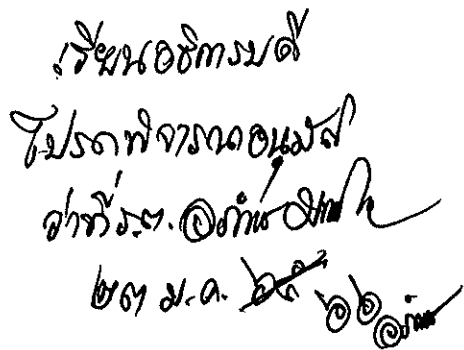 เรียนอธิการบดี
โปรดพิจารณาอนุมัติ
ว่าที่ ร.ต.
๒๓ ม.ค. ๖๖